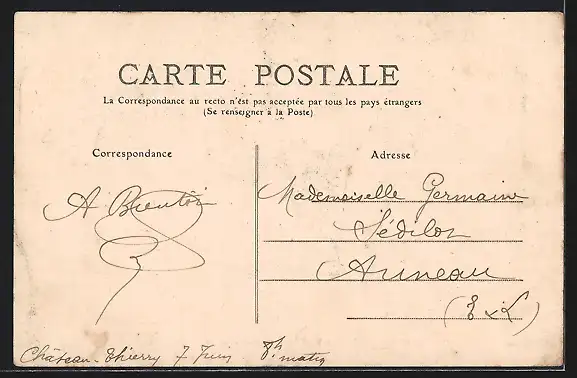 CARTE POSTALE
La Correspondance au recto n'est pas acceptée par tous les pays étrangers
(Se renseigner à la Poste)
Correspondance
Adresse
A Bientôt
Mademoiselle Germaine
Sédilot
Auneau
(E & L)
Château-Thierry 7 Juin 8h matin